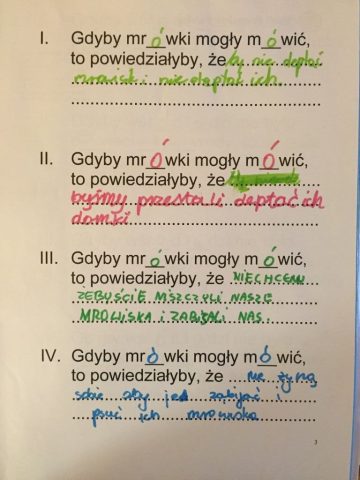 I. Gdyby mrówki mogły mówić,
to powiedziałyby, że by nie deptać
mrowisk i nie deptać ich.
II. Gdyby mrówki mogły mówić,
to powiedziałyby, że
byśmy przestali deptać ich
domki
III. Gdyby mrówki mogły mówić,
to powiedziałyby, że NIECHCEMY
ŻEBYŚCIE NISZCZYLI NASZE
MROWISKA i ZABIJALI NAS.
IV. Gdyby mrówki mogły mówić,
to powiedziałyby, że nie życzą
sobie aby jeść zabijać i
psuć ich mrowiska
3